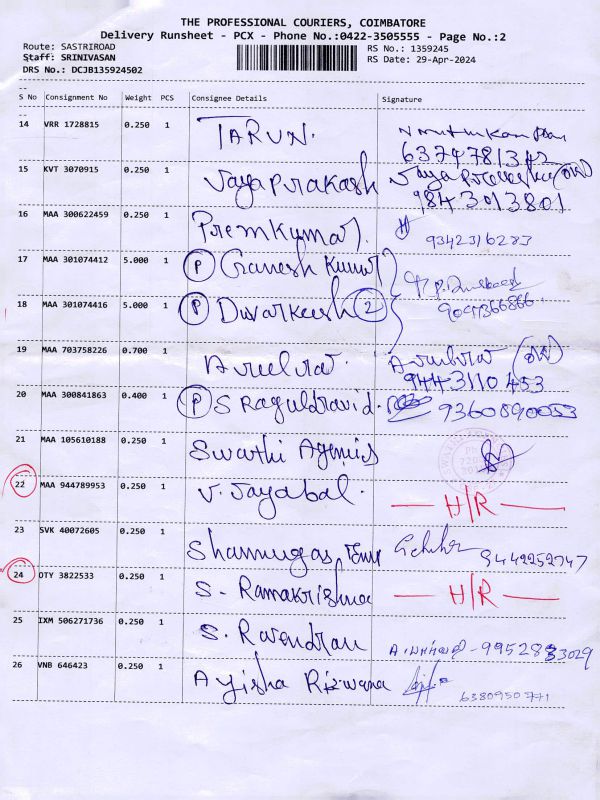 THE PROFESSIONAL COURIERS, COIMBATORE
Delivery Runsheet - PCX - Phone No.:0422-3505555 - Page No.:2
Route: SASTRIROAD RS No.: 1359245
Staff: SRINIVASAN RS Date: 29-Apr-2024
DRS No.: DCJB135924502
S No Consignment No Weight PCS Consignee Details Signature
14 VRR 1728815 0.250 1 TARUN.
15 KVT 3070915 0.250 1 Jayaprakash
9843013801
16 MAA 300622459 0.250 1 Premkumar. 9342316283
17 MAA 301074412 5.000 1 P Ganesh Kumar
18 MAA 301074416 5.000 1 P Dwarkeesh 2
19 MAA 703758226 0.700 1
9443110453
20 MAA 300841863 0.400 1 P S Raguldravid. 9360890053
21 MAA 105610188 0.250 1 Swathi Agencies
22 MAA 944789953 0.250 1 V. Jayabal. H/R
23 SVK 40072605 0.250 1 9442252747
24 OTY 3822533 0.250 1 S. Ramakrishna H/R
25 IXM 506271736 0.250 1 S. Ravendran
26 VNB 646423 0.250 1 Ayisha Rizwana 6380950771